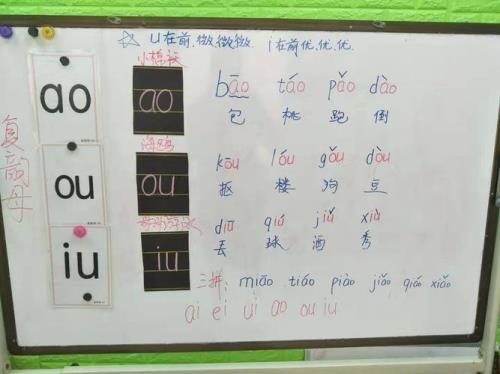 ☆ u在前,微,微,微. i在前优,优,优.
复韵母
ao
小棉袄
ao
bāo táo pǎo dào
包 桃 跑 倒
ou
海鸥
ou
kōu lóu gǒu dòu
抠 楼 狗 豆
iu
iu
diū qiú jiǔ xiù
丢 球 酒 秀
三拼: miāo tiáo piào jiǎo qiáo xiǎo
ai ei ui ao ou iu